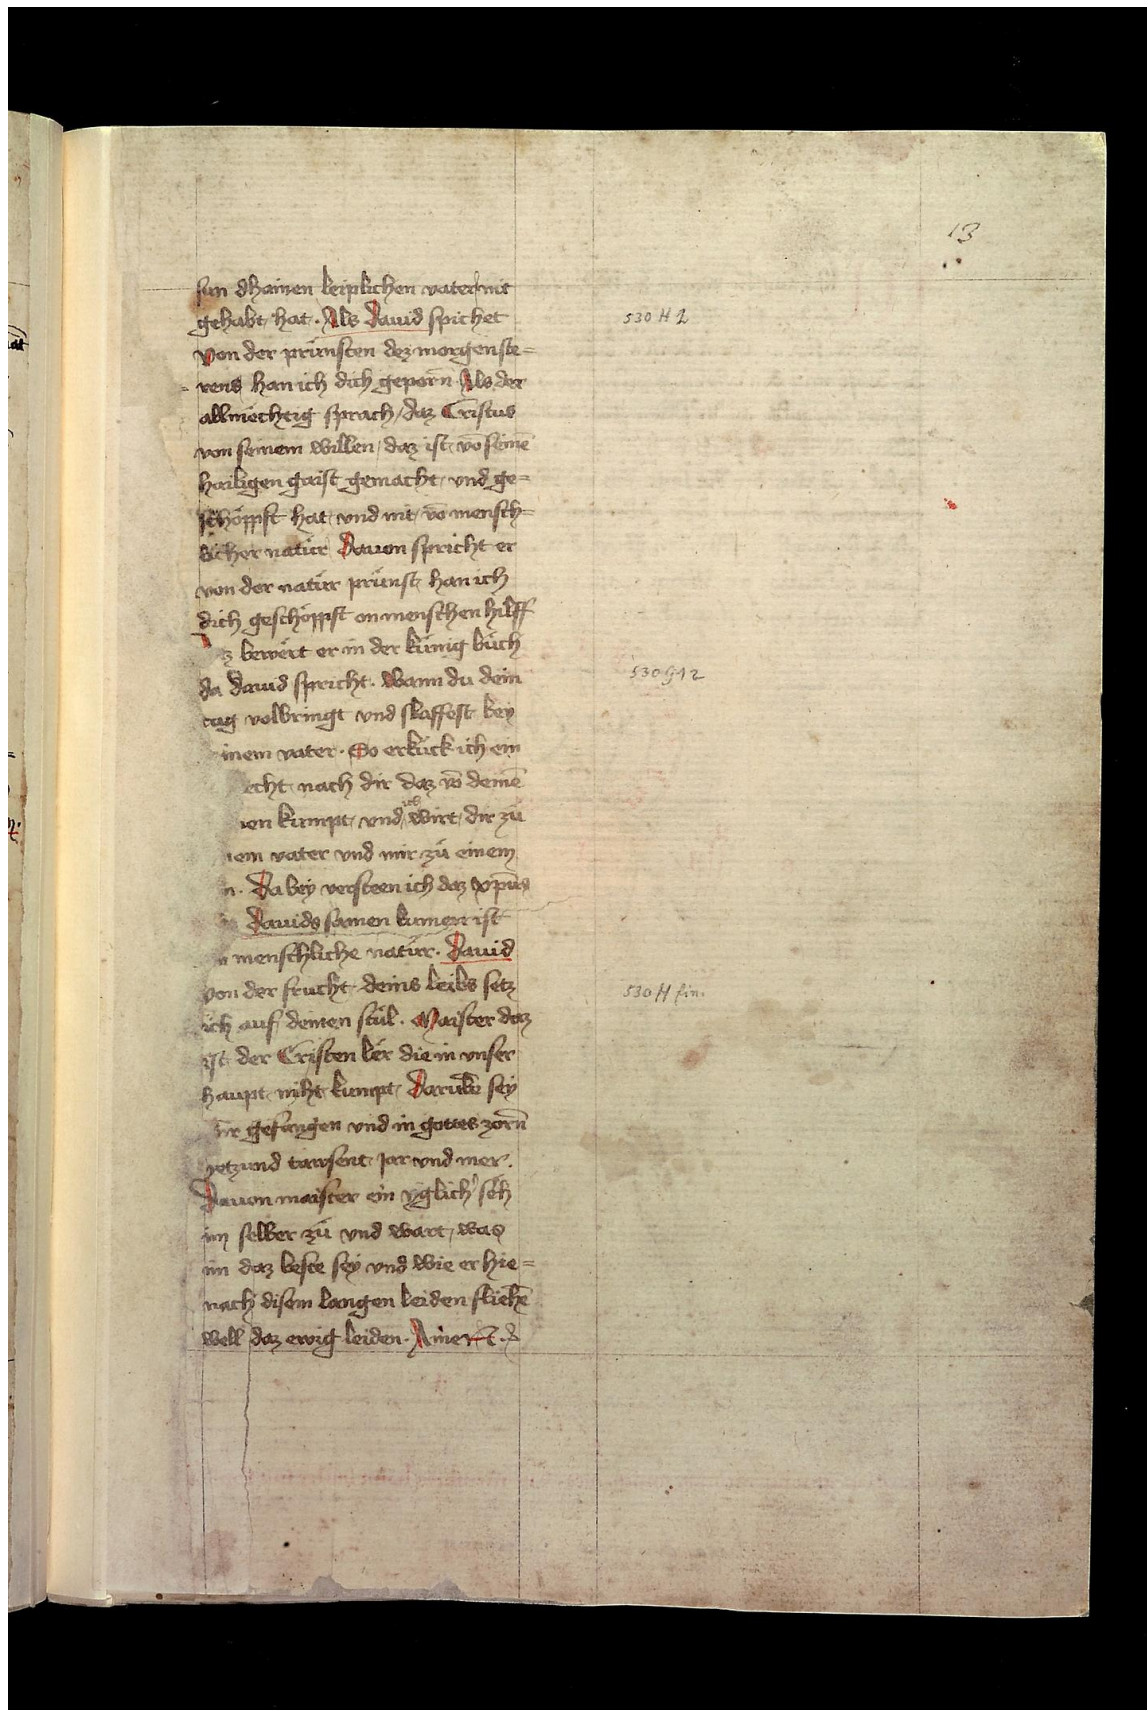 13
sun dhainen leiplichen vater nit
gehabt hat. Als dauid sprichet
530 H 2
von der prünsten dez morgenste=
rens han ich dich geporn Als der
allmechtig sprach / daz Cristus
von seinem willen / daz ist vō seinē
hailigen gaist gemacht vnd ge=
schöppft hat vnd nit vō mensch=
licher natür Dauon spricht er
von der natür prünst han ich
dich geschöppft on menschen hilff
z bewërt er in der künig büch
da dauid spricht. Wann du dein
530 G 12
tag volbringt vnd slaffest bey
inem vater. So erkück ich ein
echt nach dir daz vō deinē
en kumpt vnd ich wirt dir zü
nem vater vnd mir zü einem
n. Da bey versteen ich daz xp̄us
Dauids samen kumen ist
n menschliche natür. Dauid
von der frucht deins leibs setz
530 H fin.
ich auf deinen stül. Maister daz
ist der Cristen lër die in vnser
haupt niht kumpt Darūb sey
wir gefangen vnd in gottes zorn
yetzund tawsent jar vnd mer.
Dauon maister ein yglich' seh
im selber zü vnd wart, was
im daz beste sey vnd wie er hie=
nach disem langen leiden fliehē
well daz ewig leiden. Amen